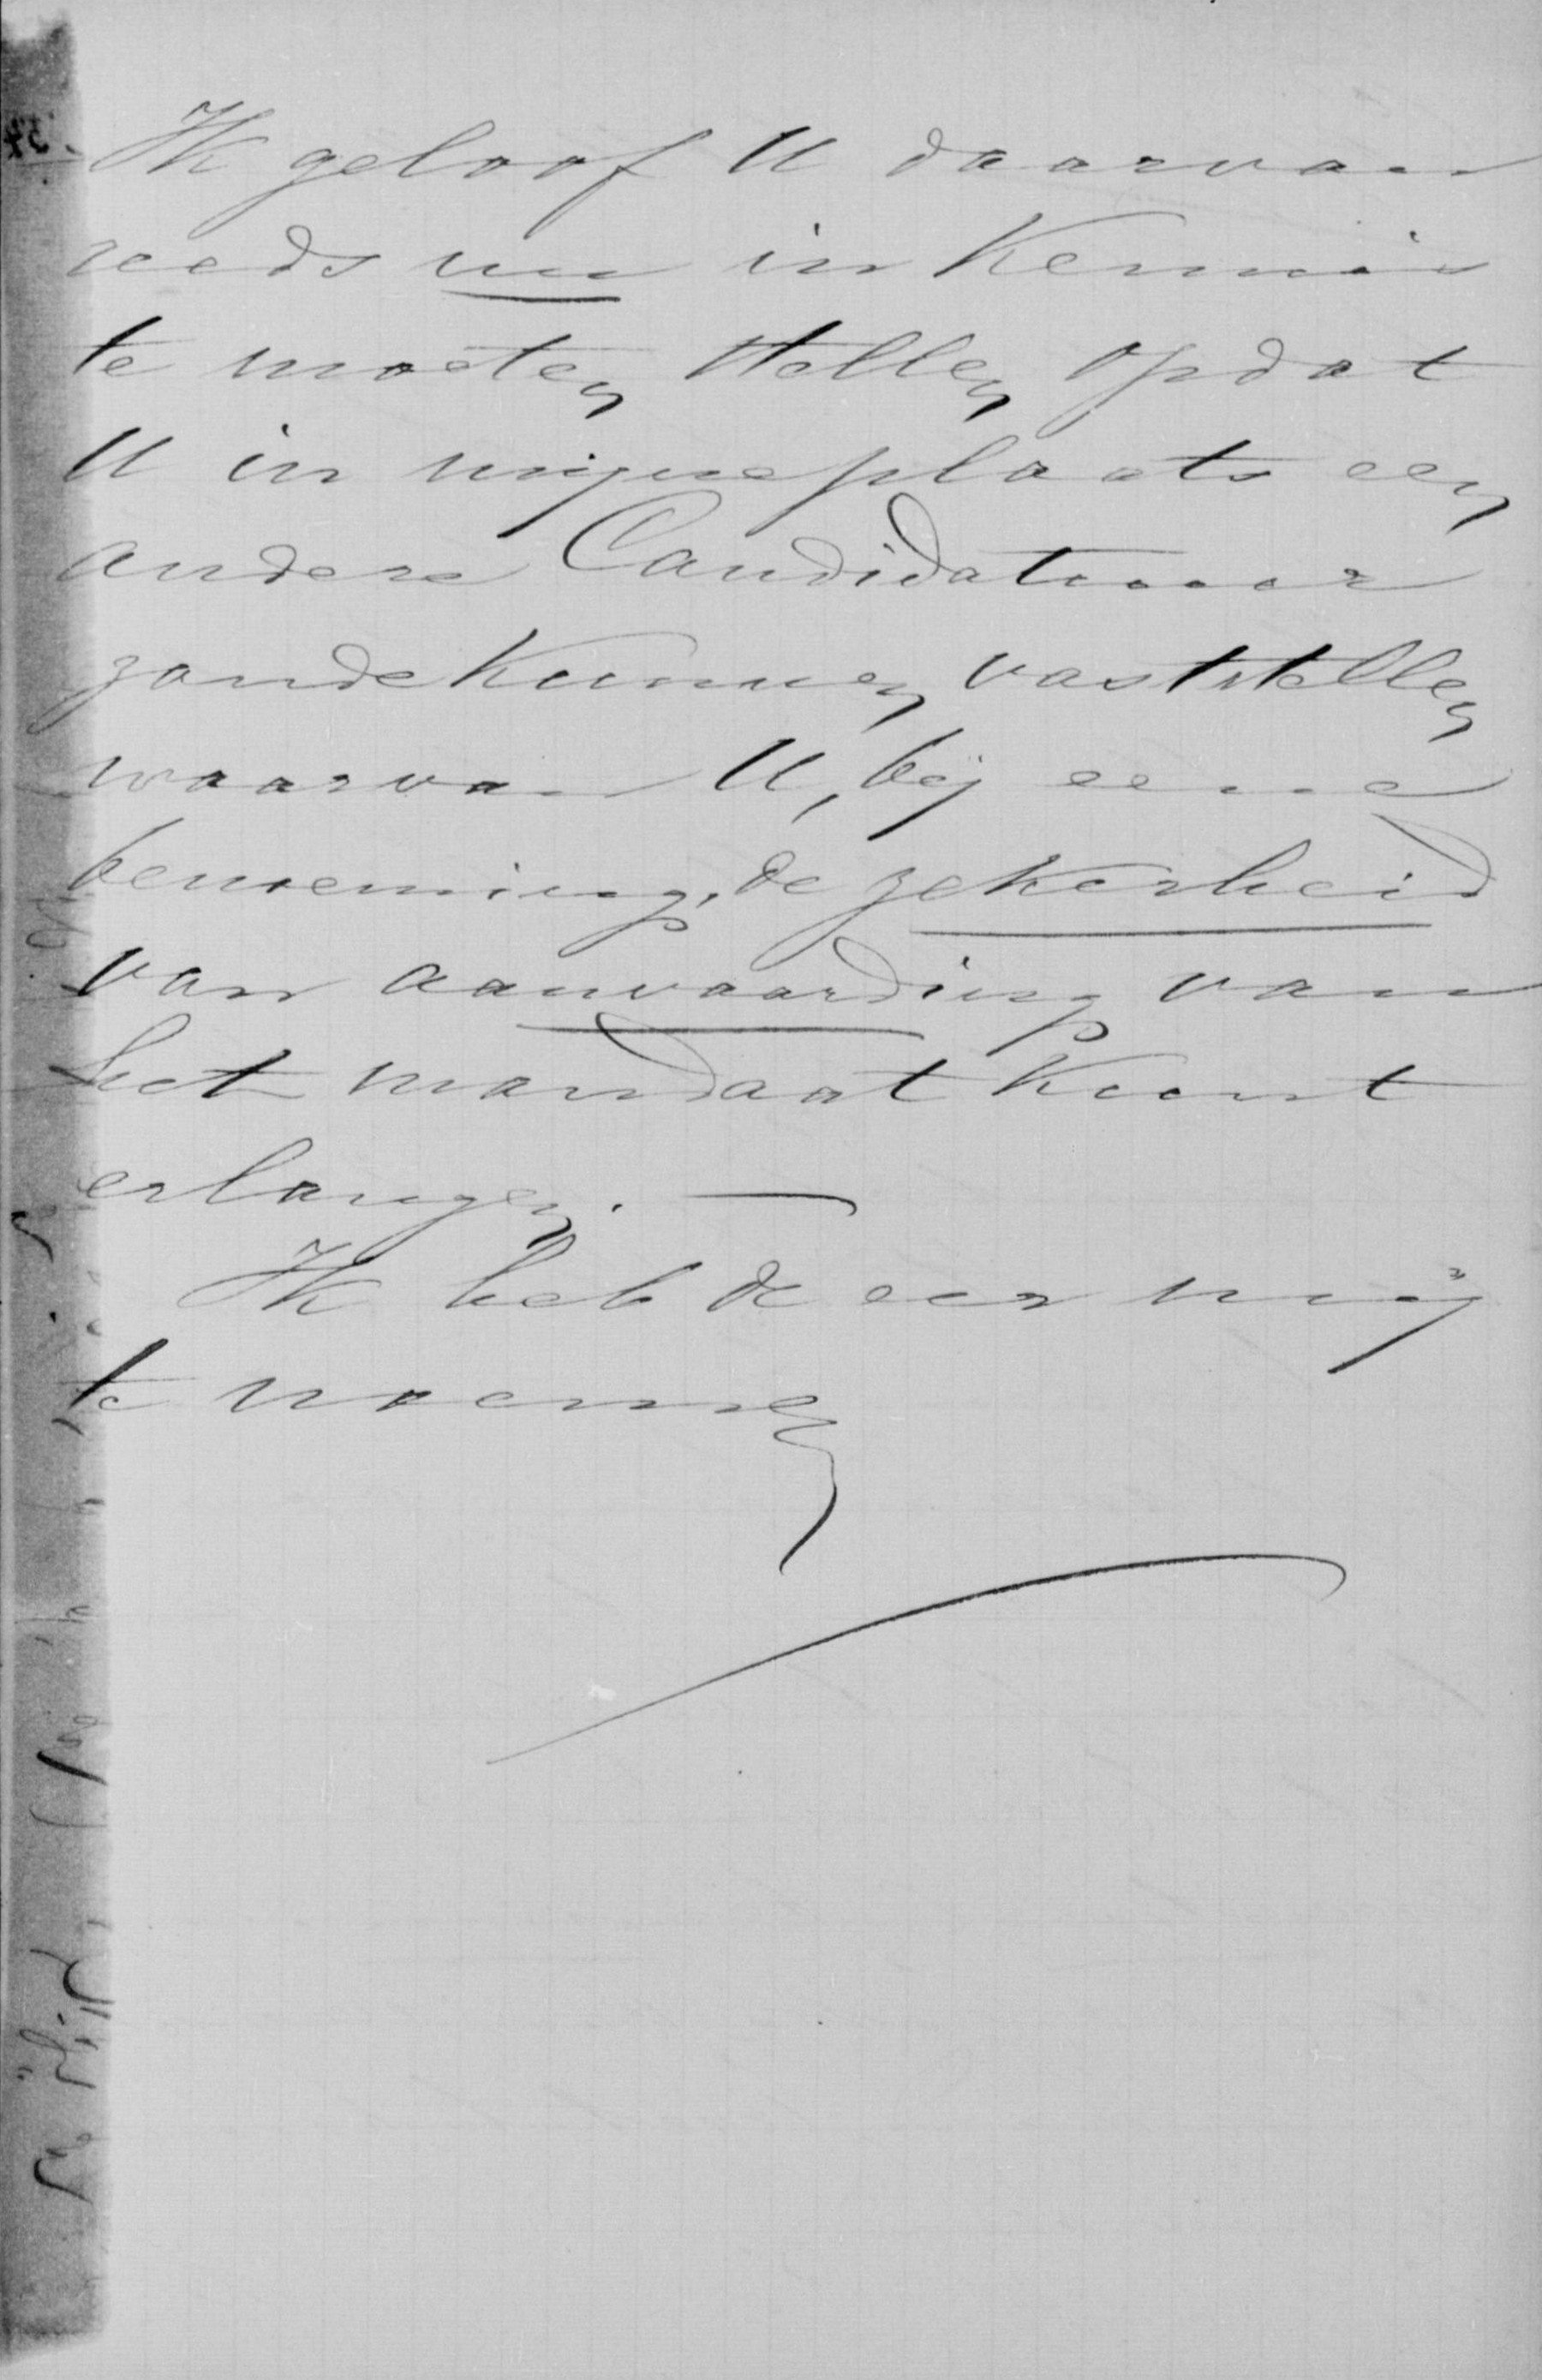 Ik geloof U daarvan
reeds nu in Kennis
te moeten stellen opdat
U in mijne plaats een
andere Candidatuur
zoude Kunnen vaststellen
waarvan U, bij eene
benoeming, de zekerheid
van aanvaarding van
het mandaat Kunt
erlangen. —
Ik heb de eer mij
te noemen